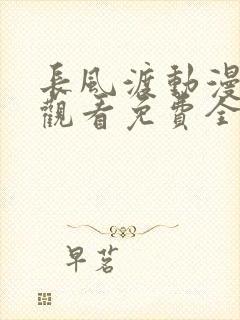 長風渡動漫
觀看免費全
早茗